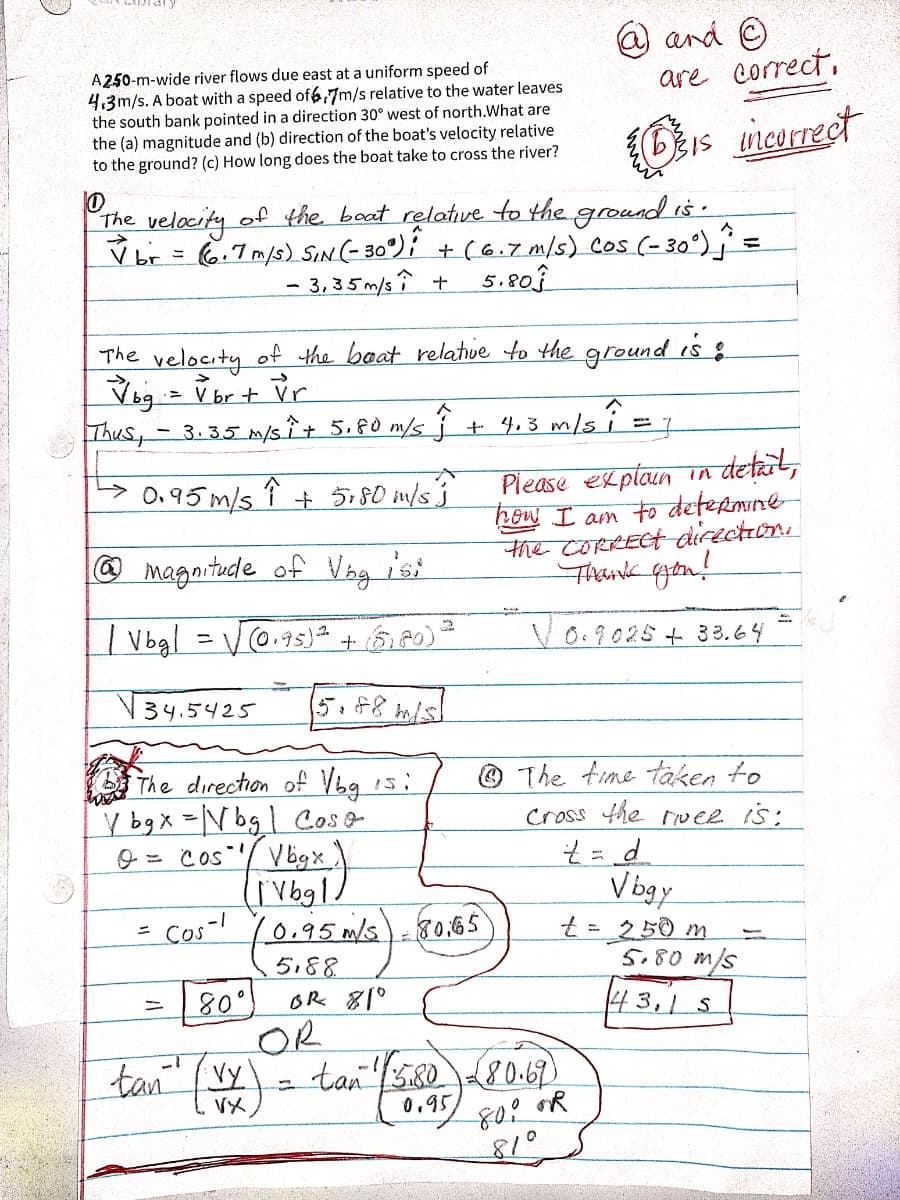 @ and ©
are correct.
A 250-m-wide river flows due east at a uniform speed of
4.3m/s. A boat with a speed of 6.7m/s relative to the water leaves
the south bank pointed in a direction 30° west of north.What are
the (a) magnitude and (b) direction of the boat's velocity relative
to the ground? (c) How long does the boat take to cross the river?
(b) is incorrect
① The velocity of the boat relative to the ground is.
V⃗br = (6.7 m/s) SIN (-30°) î + (6.7 m/s) cos (-30°) ĵ =
- 3.35 m/s î + 5.80 ĵ
The velocity of the boat relative to the ground is :
V⃗bg = V⃗br + V⃗r
Thus, - 3.35 m/s î + 5.80 m/s ĵ + 4.3 m/s î =
→ 0.95 m/s î + 5.80 m/s ĵ
Please explain in detail,
how I am to determine
the CORRECT direction.
Thank you!
ⓐ magnitude of Vbg is:
|Vbg| = √(0.95)² + (5.80)² = √0.9025 + 33.64 =
√34.5425 = 5.88 m/s
(b) The direction of Vbg is:
Vbgx = |Vbg| Cos θ
θ = cos⁻¹ (Vbgx / |Vbg|)
= cos⁻¹ (0.95 m/s / 5.88) = 80.65
= 80° OR 81°
OR
tan⁻¹ (Vy / Vx) = tan⁻¹ (5.80 / 0.95) = 80.69
80° OR
81°
© The time taken to
cross the river is:
t = d / Vbgy
t = 250 m / 5.80 m/s =
43.1 s